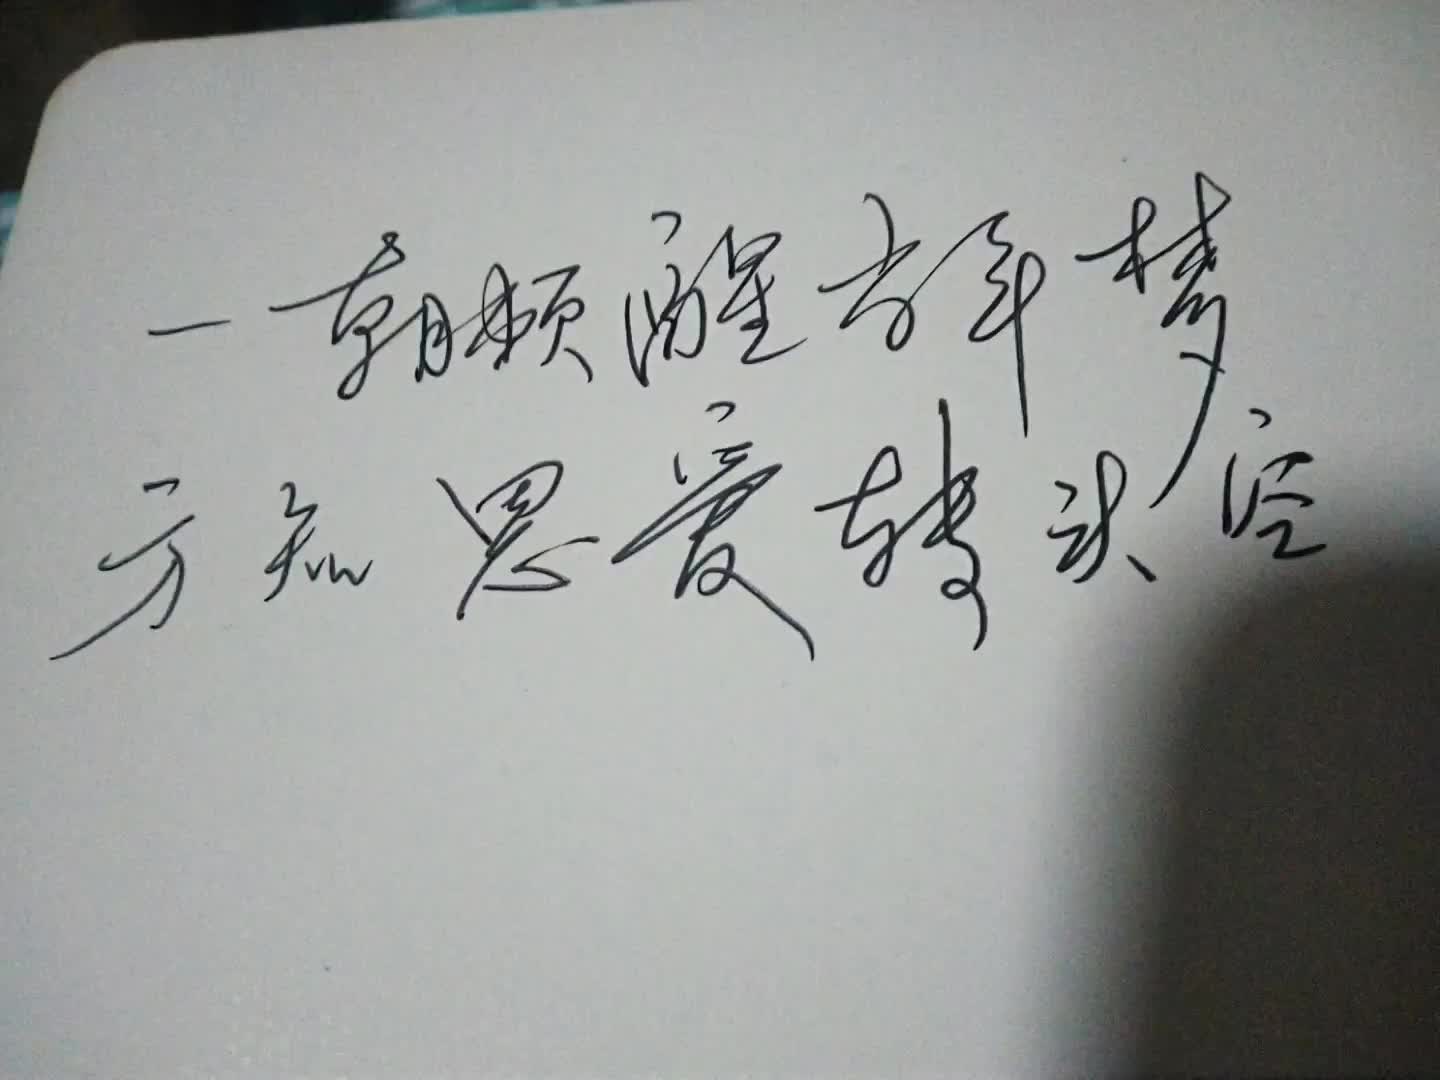 一朝顿醒方年梦
方知恩爱转头空